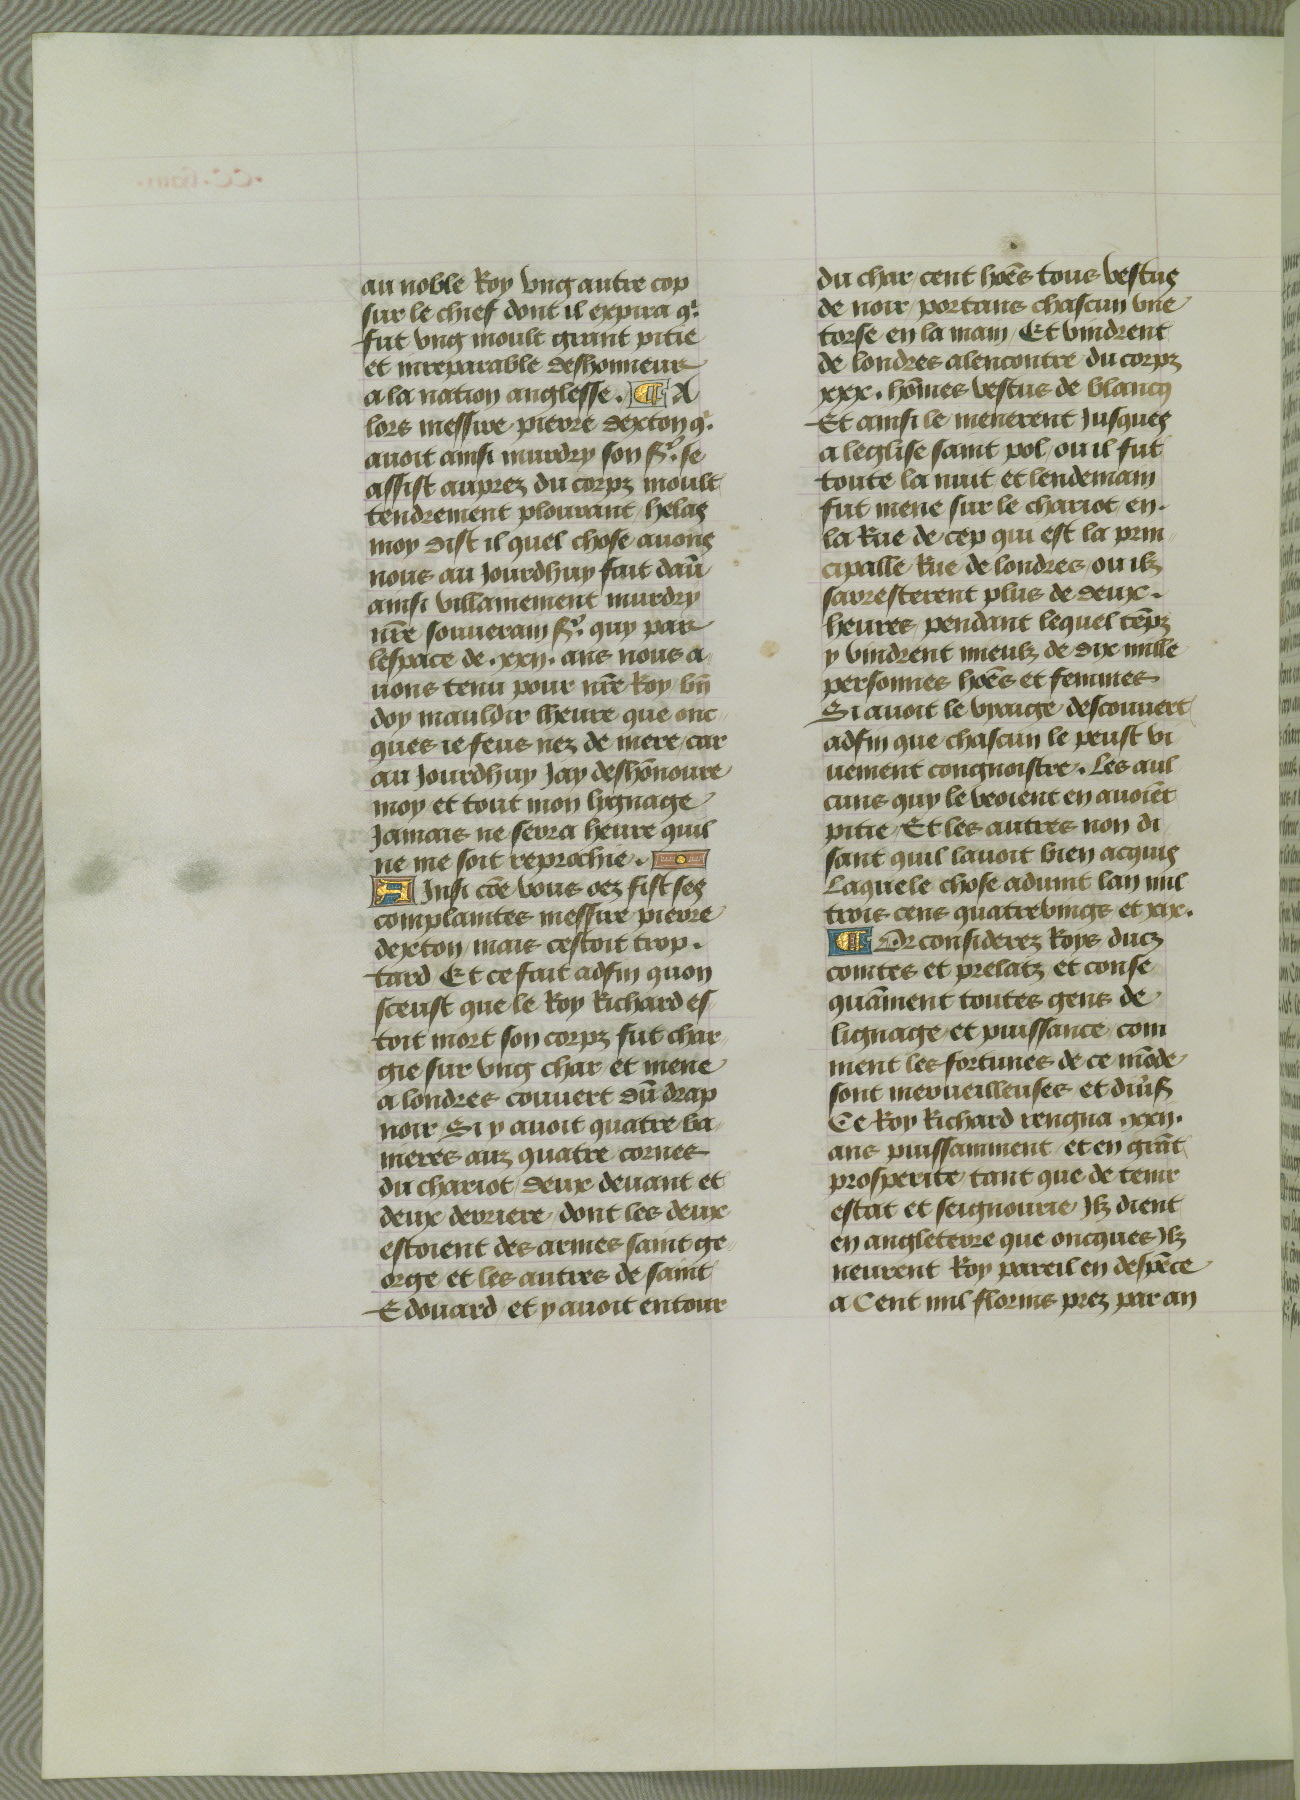 au noble Roy vng autre cop
sur le chief dont il expira q̄
fut vng moult grant pitie
et irreparable deshonneur
a la nation anglesse. A
lors messire pierre dexton q̄
auoit ainsi murdry son sr̄. se
assist auprez du corpz moult
tendrement plourant / helas
moy dist il quel chose auons
nous au Jourdhuy fait dau̅
ainsi villainement murdry
nr̄e souuerain sr̄. quy par
lespace de .xxij. ans nous a
uons tenu pour nr̄e Roy bn̄
doy mauldir lheure que onc
ques ie feus nez de mere / car
au Jourdhuy Jay deshōnoure
moy et tout mon lygnage
Jamais ne serra heure quil
ne me soit reprochie.
AInsi cōe vous oez fist ses
complaintes messire pierre
dexton / mais cestoit trop.
tard Et ce fait adfin quon
sceust que le Roy Richard es
toit mort son corpz fut char
gie sur vng char et mene
a londres couuert du̅ drap
noir Si y auoit quatre ba
nieres auz quatre cornes
du chariot / deux deuant et
deux derriere / dont les deux
estoient des armes saint ge
orge et les autres de saint
Edouard / et y auoit entour
du char / cent hoēs tous vestus
de noir / portans chascun vne
torse en la main / Et vindrent
de londres alencontre du corpz
xxx. hōmes vestus de blancq
Et ainsi le menerent Jusques
a leglise saint pol / ou il fut
toute la nuit et lendemain
fut mene sur le chariot en.
la Rue de cep qui est la prin
cipalle Rue de londres / ou ilz
sarresterent plus de deux.
heures / pendant lequel tēpz
y vindrent mieulz de dix mille
personnes hoēs et femmes
Si auoit le vyaige descouuert
adfin que chascun le peust vi
uement congnoistre. Les aul
cuns quy le veoient en auoiēt
pitie / Et les autres non di
sant quil lauoit bien acquis
Laquele chose aduint lan mil
trois cens quatrevings et xix.
Or considerez Roys ducz
comtes et prelatz et conse
quāment toutes gens de
lignage et puissance / com
ment les fortunes de ce mōde
sont merueilleuses et diu̅s
Ce Roy Richard rengna .xxij.
ans puissamment / et en grāt
prosperite / tant que de tenir
estat et seignourie / Jlz dient
en angleterre que oncques Jlz
neurent Roy pareil en despēce
a Cent mil florins prez par an